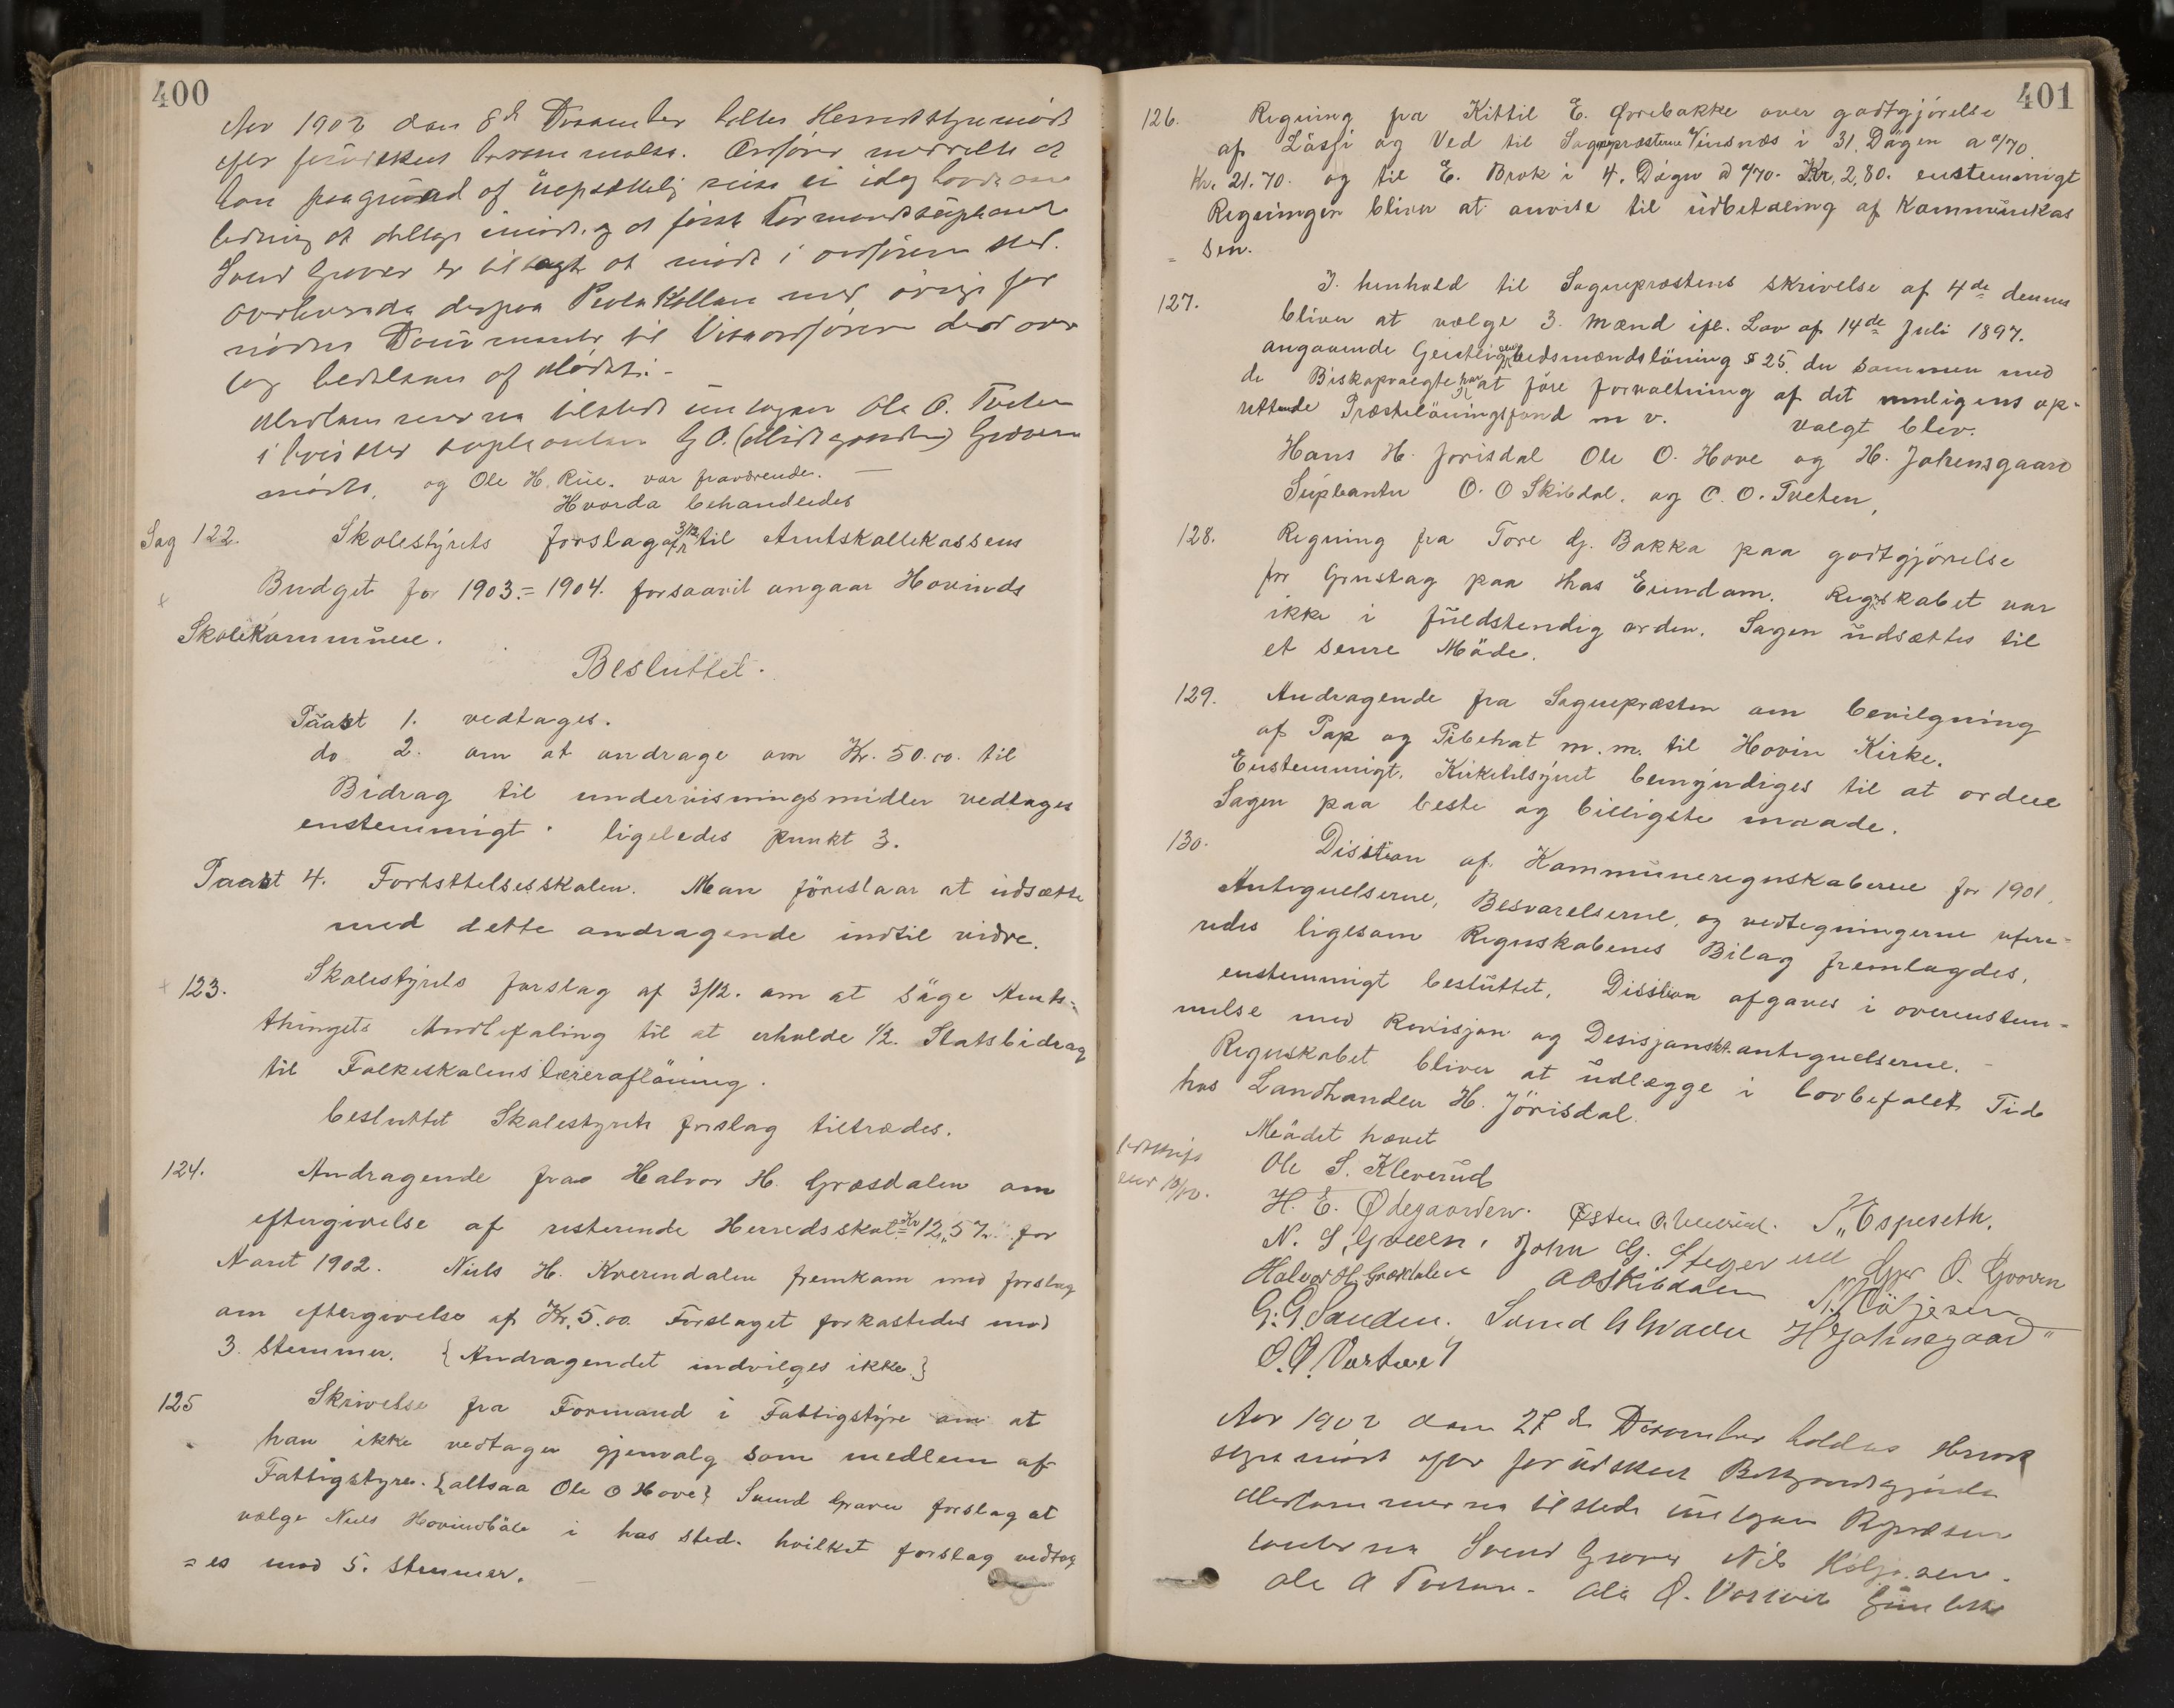 400
Aar 1902 den 8d December holtes Herredstyremöde
efter forudskeet berammelse. Ordförer meddelte at
han paagrund af uopsættelig reise ei idag havde an
ledning at deltage i mödet, og at förste Formandsupleant
Svend Graver er tilsagt at möde i ordförers sted.
Overleverede derpaa Protokollen med övrige for
nödne Documenter til Viseordförer der over
tog ledelsen af Mödet. -
Medlemmerna tilstede undtagen Ole O. Tveten
i hvis sted supleanten G O. (Midtgaarden) Graver
mödte, og Ole H. Rue. var fraværende. —
Hvorda behandledes
Sag 122. Skolestyrets forslag af 3/12 til Amtskollekassens
Budget for 1903.=1904. forsaavit angaar Hovinds
Skolekommune.
Besluttet.
Paast 1. vedtages.
do 2. om at andrage om Kr. 50.00. til
Bidrag til undervisningsmidler vedtages
enstemmigt. ligeledes punkt 3.
Paast 4. Fortsttelsesskolen. Man föreslaar at udsætte
med dette andragende indtil vidre.
123. Skolestyrets forslag af 3/12. om at söge Amts=
thingets Andbefaling til at erholde 1/2. Statsbidrag
til Folkeskolens læreraflöning.
besluttet Skolestyrets forslag tiltrædes.
124. Andragende fra Halvor H. Græsdalen om
eftergivelse af resterende Herredsskat = Kr 12,,57. for
Aaret 1902. Niels H. Kverndalen fremkom med forslag
om eftergivelse af Kr. 5.00. Forslaget forkastedes mod
3. Stemmer. {Andragendet indvilges ikke.}
125 Skrivelse fra Formand i Fattigstyre om at
han ikke vedtager gjenvalg som medlem af
Fattigstyre. {altsaa Ole O Hove} Svend Graver forslag at
vælge Niels Hovindböle i has sted. hvilket forslag vedtog
= es mod 5. stemmer. —
401
126. Regning fra Kittil E. Ørrebakke over godtgjörelse
af Losji og Ved til Sognepræsterne Vinsnæs i 31. Dögen a 0/70.
Kr. 21.70. og til E. Brok i 4. Dögn a 0/70. Kr. 2,80. enstemmigt
Regningen bliver at anvise til udbetaling af Kommunekas
= sen.
127. I. henhold til Sognepræstens skrivelse af 4de dennes
bliver at vælge 3. Mænd ifl. Lov af 14de Juli 1897.
angaaende Geistlig embedsmændslöning § 25. der sammen med
de Biskopvalgte har at före forvaltning af det muligens op-
rettende Præstelöningsfond m v. Valgt blev.
Hans H. Jorisdal Ole O. Hove og H. Johensgaard
Suplanter O. O Skibdal. og O. O. Tveten,
128. Regning fra Tore G. Bakka paa godtgjörelse
for Grustag paa has Eiendom. Regnskabet var
ikke i fuldstendig orden. Sagen udsættes til
et senre Möde.
129. Andragende fra Sognepræsten om bevilgning
af Pap og Pibehat m.m. til Hovin Kirke.
Enstemmigt. Kirketilsynet bemyndiges til at ordne
Sagen paa beste og billigste maade.
130. Disition af. Kommuneregnskaberne for 1901.
Antegnelserne, Besvarelserne, og vedtegningerne refere=
redes ligesom Regnskabenes Bilag fremlagdes.
enstemmigt besluttet. Disition afgaves i overenstem=
melse med Revisjon og Desisjons antegnelserne. -
Regnskabet bliver at udlægge i lovbefalet Tid
hos Landhandler H. Jörisdal.
Mödet hævet
Ole S. Kleverud
H. E. Ødegaarden. Østen O. S. Espeseth.
N. S. Graven. John G. Stegerud Gjer O. Graven
Halvor H. Græsdalen O O Skibdalen N. Höljesen
G. G Sanden. Svend G Graver H Johnsgaard
O. O. Vartveit
Aar 1902 den 27de December holdes Herred
styremöde efter forudskeet Bekjendtgjörelse
Medlemmerna tilstede undtagen Repræsen
tanterna Svend Graver Nils Höljesen.
Ole O Tveten. Ole O. Vartveit